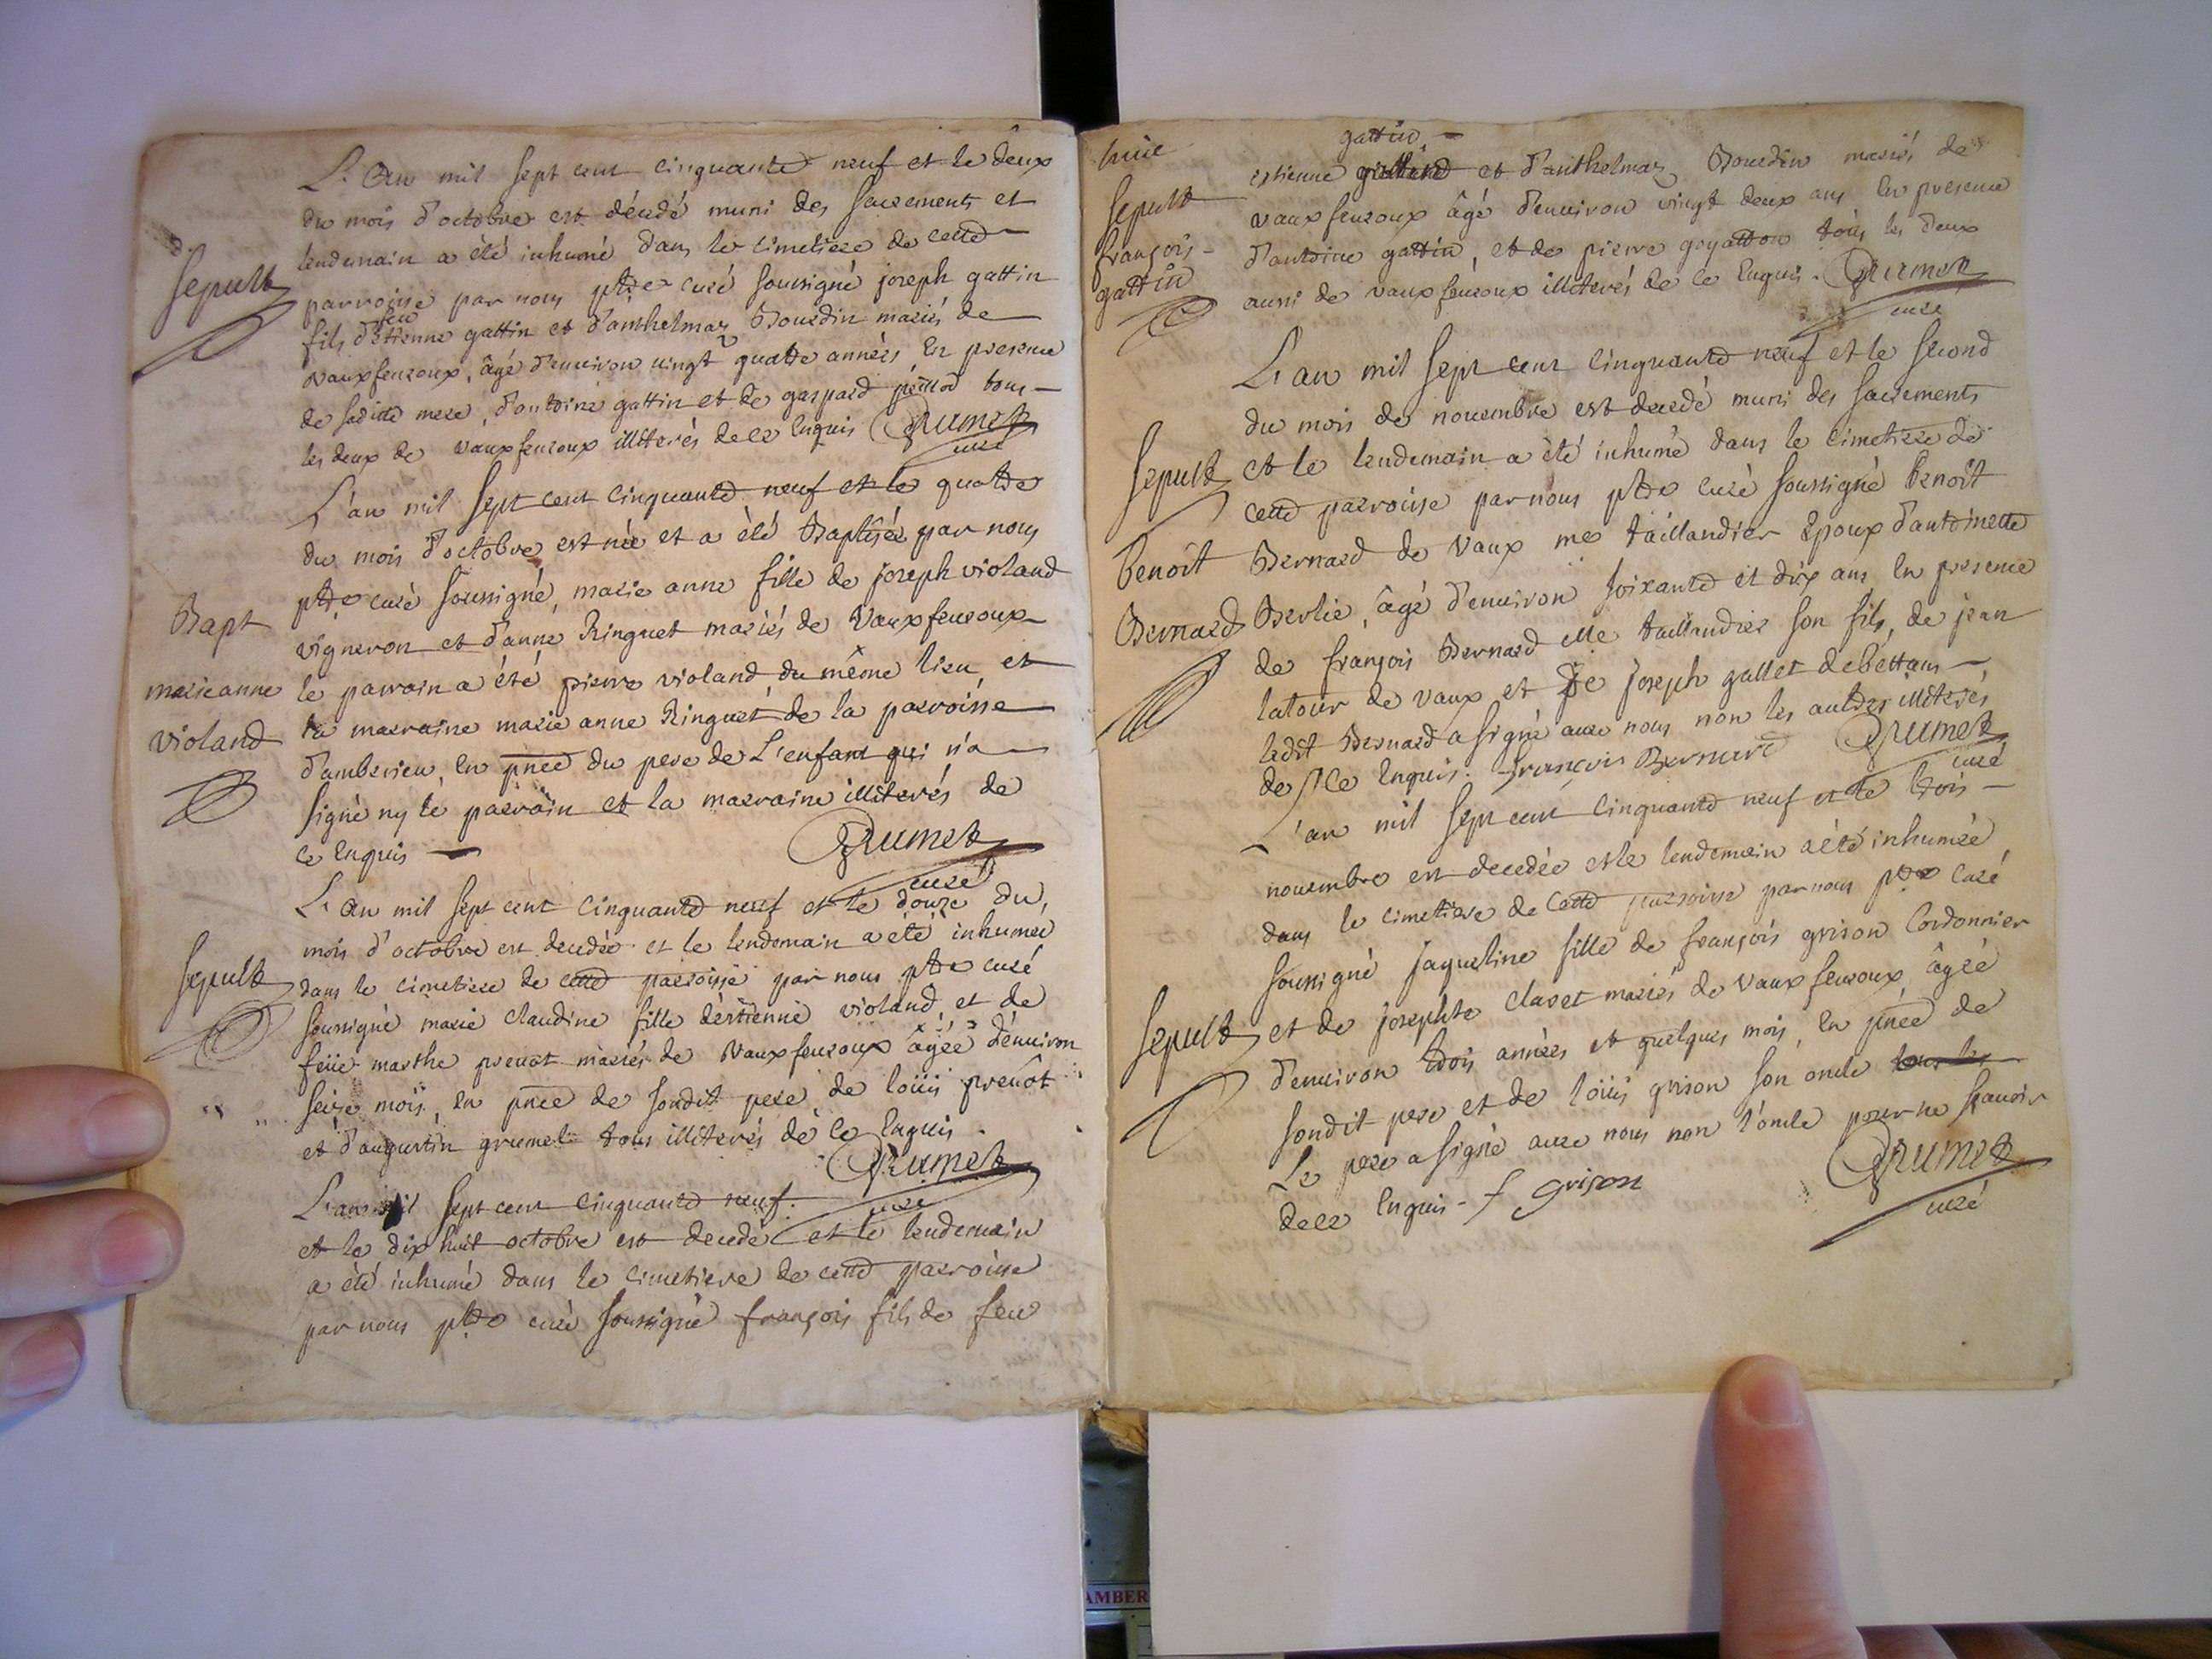 L'An mil sept cent cinquante neuf et le deux
du mois d'octobre est décédé muni des sacrements et
lendemain a été inhumé dans le cimetiere de cette
Sepult
parroisse par nous ptre curé soussigné joseph gattin
fils d'étienne gattin et d'anthelmaz Bourdin mariés de
feu
vauxfeuroux, âgé d'environ vingt quatre années En presence
de sadite mere, d'antoine gattin et de gaspard tous
les deux de vauxfeuroux illiterés de ce Enquis Grumet
curé
L'an mil sept cent cinquante neuf et le quatre
du mois d'octobre est née et a été Baptisée par nous
ptre curé soussigné, marie anne fille de joseph violand
Bapt
vigneron et d'anne Ringuet mariés de vauxfeuroux
marie anne
le parrain a été pierre violand du même lieu, et
violand
la marraine marie anne Ringuet de la parroisse
d'amberieu, En pnce du pere de L'enfant qui n'a
signé ny le parrain et la marraine illiterés de
ce Enquis Grumet
curé
L'An mil sept cent cinquante neuf et le douze du
mois d'octobre est decedée et le lendemain a été inhumée
Sepult
dans le cimetiere de cette parroisse par nous ptre curé
soussigné marie claudine fille d'estienne violand, et de
feüe marthe prevot mariés de vauxfeuroux âgée d'environ
seize mois, En pnce de sondit pere, de loüis prevôt
et d'augustin grumet tous illiterés de ce Enquis.
Grumet
curé
L'an mil sept cent cinquante neuf
et le dix huit octobre est decedé et le lendemain
a été inhumé dans le cimetiere de cette parroisse
par nous ptre curé soussigné françois fils de feu
gattin
estienne et d'anthelmaz Bourdin mariés de
Sepult
vauxfeuroux âgé d'environ vingt deux ans En presence
françois
d'antoine gattin, et de pierre goyatton tous les deux
gattin
aussi de vauxfeuroux illiterés de ce Enquis. Grumet
curé
L'an mil sept cent cinquante neuf et le second
du mois de novembre est decedé muni des sacrements
Sepult
et le lendemain a été inhumé dans le cimetiere de
cette parroisse par nous ptre curé soussigné benoît
benoît
Bernard de vaux me taillandier Epoux d'antoinette
Bernard
Berlie, âgé d'environ soixante et dix ans En presence
de françois Bernard Me taillandier son fils, de jean
latour de vaux et de joseph gallet de bettans
ledit Bernard a signé avec nous non les autres illiterés
de ce Enquis. François Bernard Grumet
curé
L'an mil sept cent cinquante neuf et le trois
novembre est decedée et le lendemain a été inhumée
dans le cimetiere de cette parroisse par nous ptre curé
soussigné jaqueline fille de françois grison Cordonnier
Sepult
et de josephte claret mariés de vauxfeuroux âgée
d'environ trois années et quelques mois, En pnce de
sondit pere et de loüis grison son oncle tous les
Le pere a signé avec nous non l'oncle pour ne sçavoir
de ce Enquis - f Grison Grumet
curé